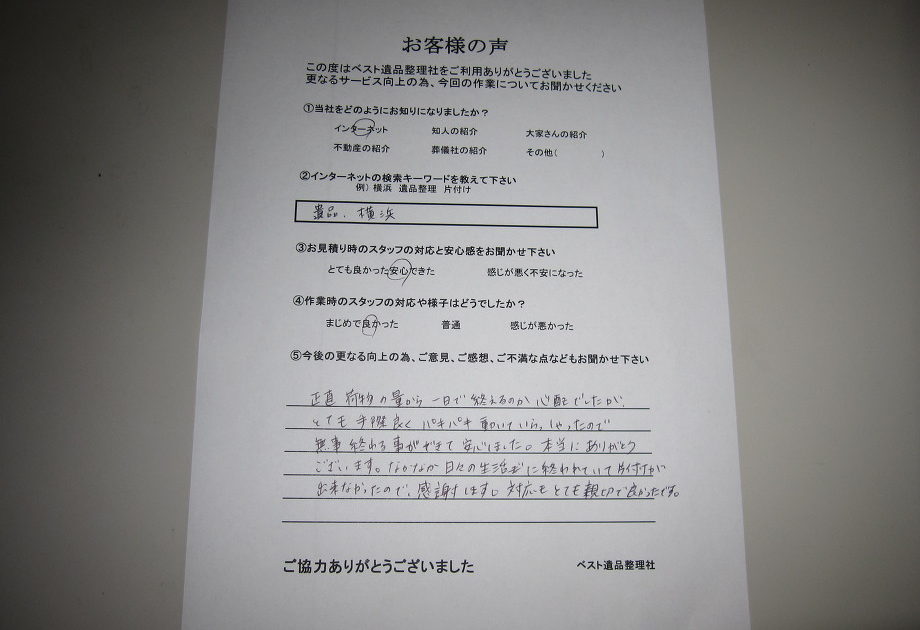 お客様の声
この度はベスト遺品整理社をご利用ありがとうございました
更なるサービス向上の為、今回の作業についてお聞かせください
①当社をどのようにお知りになりましたか？
インターネット 知人の紹介 大家さんの紹介
不動産の紹介 葬儀社の紹介 その他( )
②インターネットの検索キーワードを教えて下さい
例）横浜 遺品整理 片付け
遺品、横浜
③お見積り時のスタッフの対応と安心感をお聞かせ下さい
とても良かった安心できた 感じが悪く不安になった
④作業時のスタッフの対応や様子はどうでしたか？
まじめで良かった 普通 感じが悪かった
⑤今後の更なる向上の為、ご意見、ご感想、ご不満な点などもお聞かせ下さい
正直荷物の量から一日で終えるのか心配でしたが、
とても手際良くパキパキ動いていらっしゃったので
無事終わる事ができて安心しました。本当にありがとう
ございます。なかなか日々の生活に終われていて片付けが
出来なかったので、感謝します。対応もとても親切で良かったです。
ご協力ありがとうございました
ベスト遺品整理社